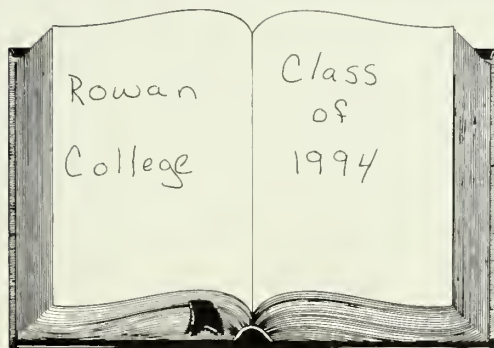 Rowan
College
Class
of
1994